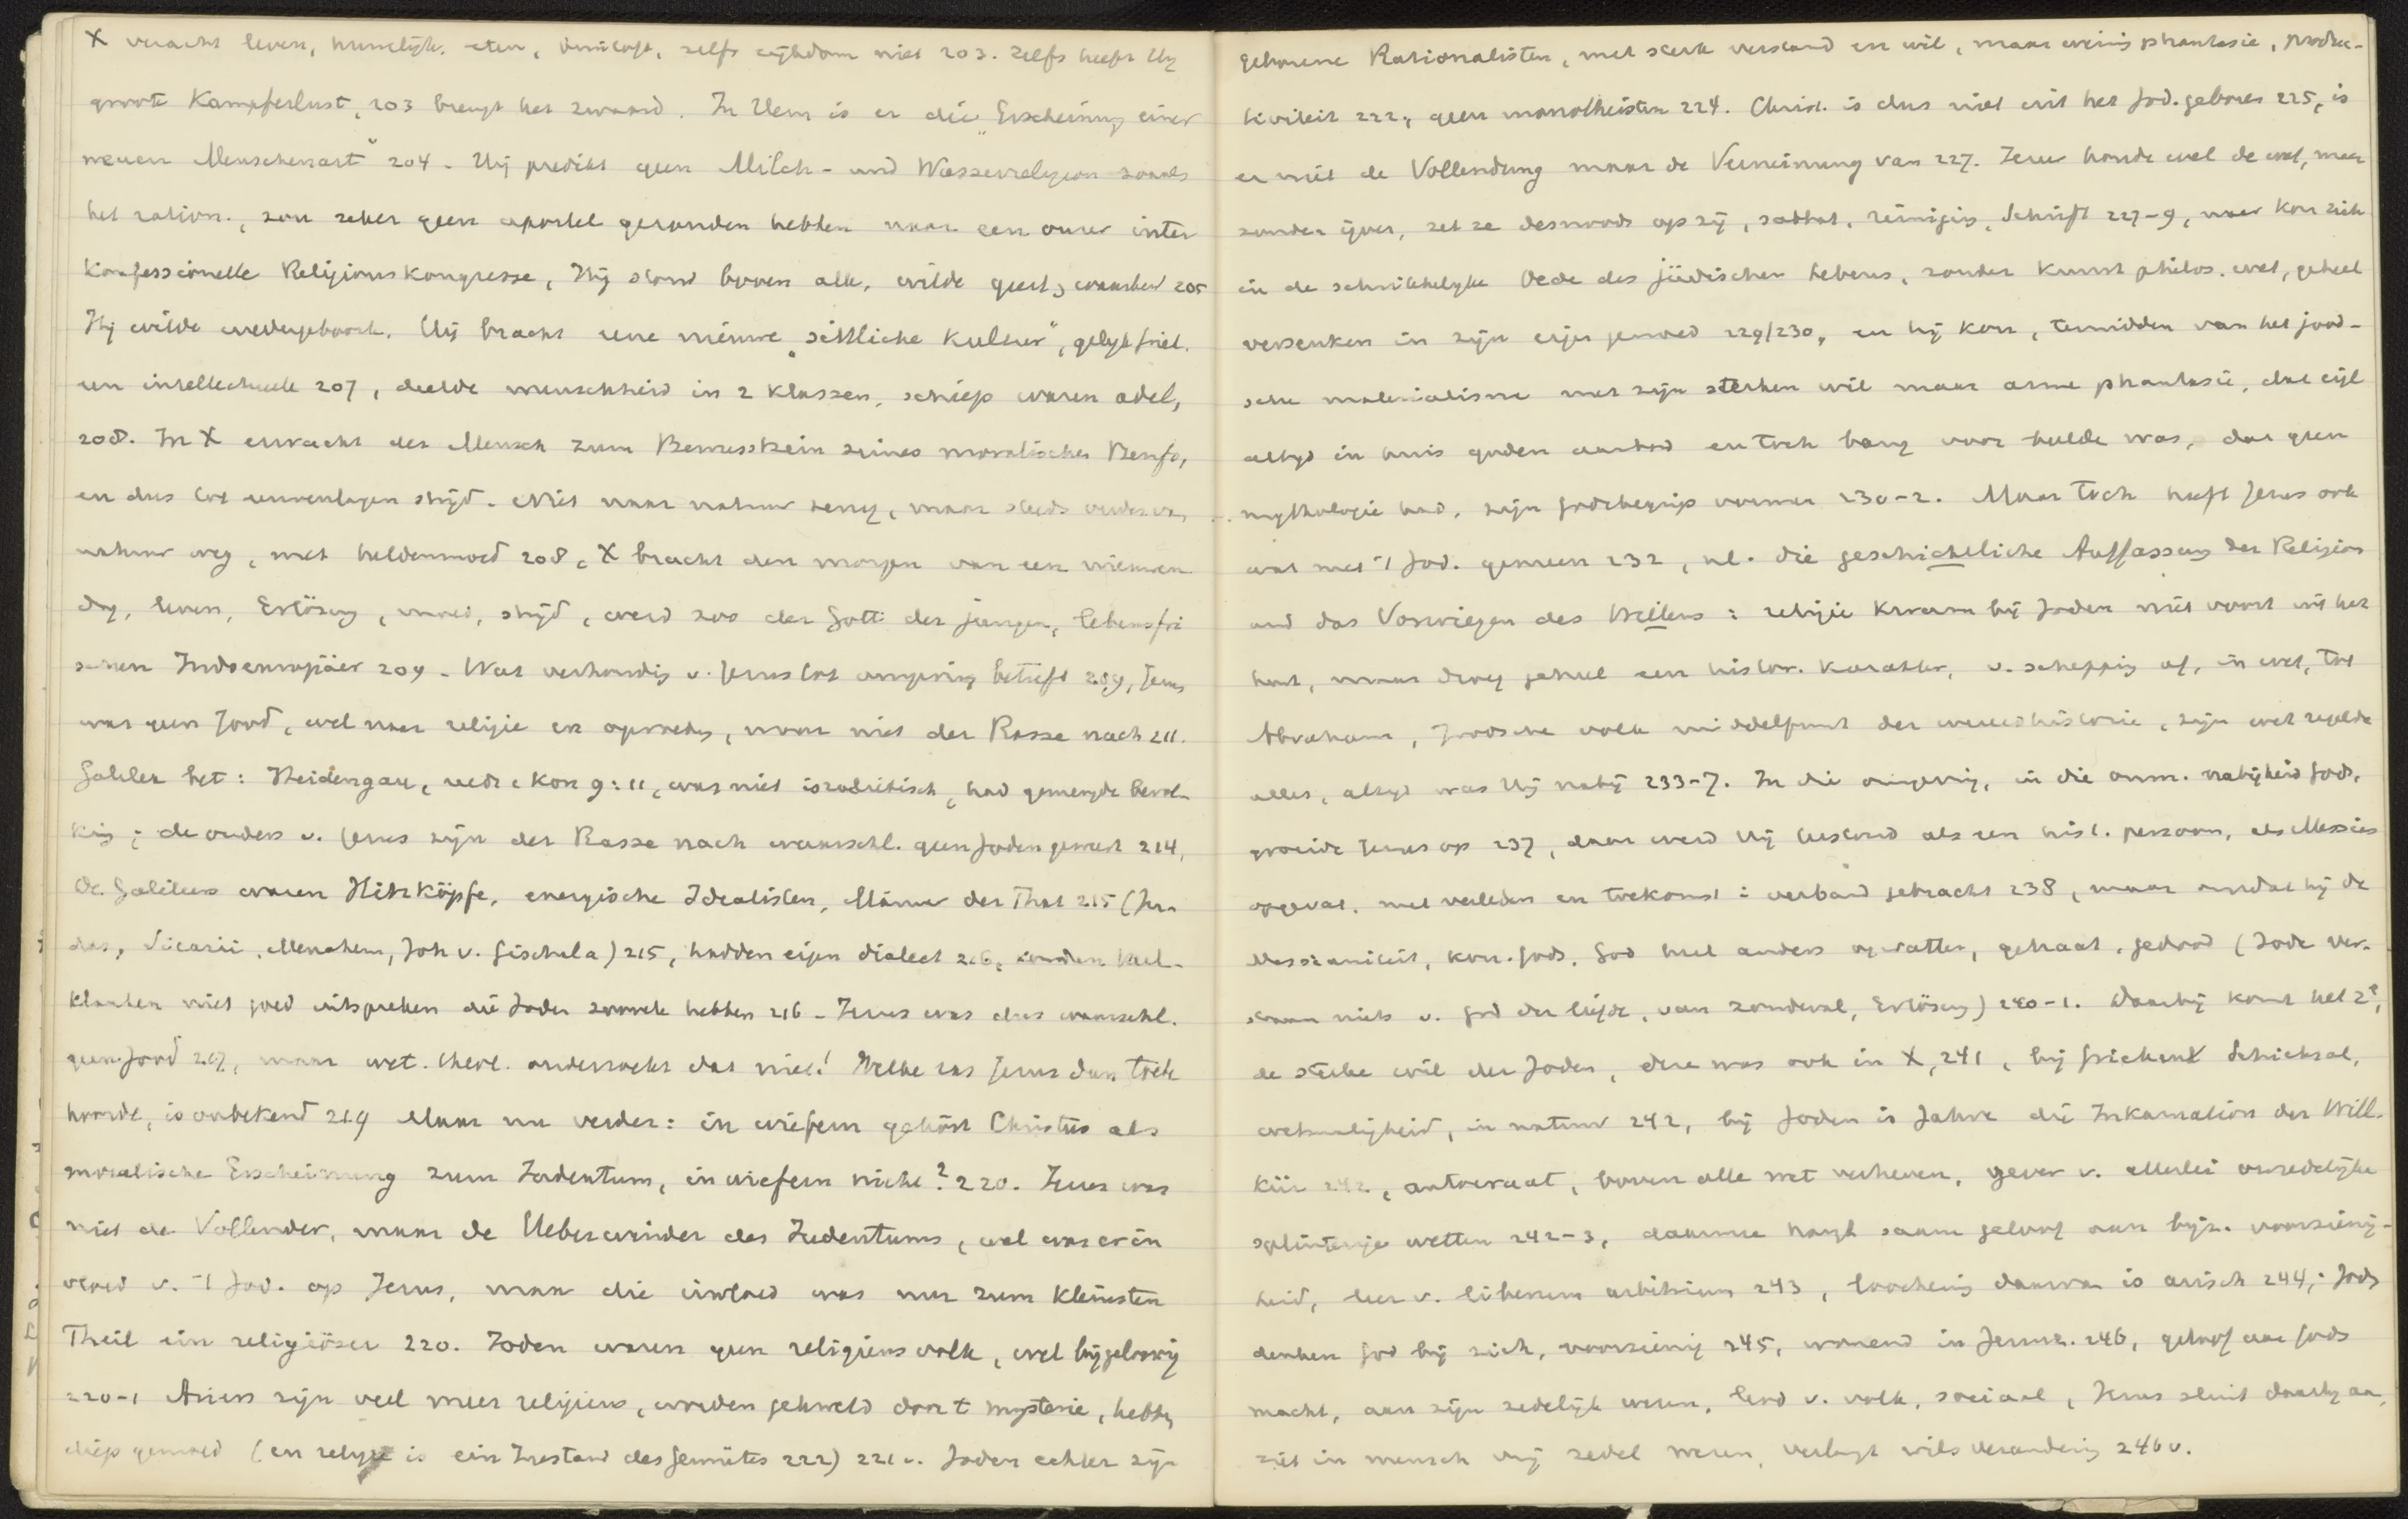 X veracht leven, huwelijk, eten, vriendsch., zelfs rijkdom niet 203. Zelfs heeft Hij
groote Kampfeslust, 203 brengt het zwaard. In Hem is er die „Erscheinung einer
neuen Menschenart" 204. Hij predikt geen Milch- und Wasserreligion zooals
het ration., zou zeker geen apostel gezonden hebben naar een onzer inter
konfessionelle Religionskongresse, Hij stond boven alle, wilde geest, waarheid 205
Hij wilde wedergeboorte. Hij bracht eene nieuwe „sittliche Kultur", gelijk Griek.
een intellectueele 207, deelde menschheid in 2 klassen, schiep waren adel,
208. In X erwacht der Mensch zum Bewusstsein seines moralischen Berufs,
en dus tot inwendigen strijd. Niet naar natuur terug, maar steeds verder van
natuur weg, met heldenmoed 208, X bracht den morgen van een nieuwen
dag, leven, Erlösung, moed, strijd, werd zoo der Gott der jungen, lebensfri
schen Indoeuropäer 209. Wat verhouding v. Jezus tot omgeving betreft 209, Jezus
was geen Jood, wel naar religie en opvoeding, maar niet der Rasse nach 211.
Galilea bet: Heidengau, reeds 1 Kon 9:11, was niet israelitisch, had gemengde bevol-
king; de ouders v. Jezus zijn der Rasse nach waarschl. geen Joden geweest 214,
De Galileers waren Hitzköpfe, energische Idealisten, Männer der That 215 (Ju-
das, Sicarii, Menahem, Joh v. Gischala) 215, hadden eigen dialect 216, konden keel-
klanken niet goed uitspreken die Joden zoovele hebben 216. Jezus was dus waarschl.
geen Jood 217, maar wet. theol. onderzoekt dat niet! Welke ras Jezus dan toch
hoorde, is onbekend 219 Maar nu verder: in wiefern gehört Christus als
moralische Erscheinung zum Judentum, in wiefern nicht? 220. Jezus was
niet de Vollender, maar de Ueberwinder des Judentums, wel was er in
vloed v. 't Jod. op Jezus, maar die invloed was nur zum kleinsten
Theil ein religiöser 220. Joden waren geen religieus volk, wel bijgeloovig
220-1 Ariers zijn veel meer religieus, worden gekweld door t mysterie, hebben
diep gemoed (en religie is ein Zustand des Gemütes 222) 221v. Joden echter zijn
geborene Rationalisten, met sterk verstand en wil, maar weinig phantasie, produc-
tiviteit 222, geen monotheisten 224. Christ. is dus niet uit het Jod. geboren 225, is
er niet de Vollendung maar de Verneinung van 227. Jezus houdt wel de wet, maar
zonder ijver, zet ze desnoods op zij, sabbat, reiniging, Schrift 227-9, maar kon zich
in de schrikkelijke Oede des jüdischen Lebens, zonder kunst philos. wet, geheel
verzenken in zijn eigen gemoed 229/230, en hij kon, temidden van het jood-
sche materialisme met zijn sterken wil maar arme phantasie, dat wijl
altijd in huis goden aanbad en toch bang voor beelde was, dat geen
mythologie had, zijn godsbegrip vormen 230-2. Maar toch heeft Jezus ook
wat met 't Jod. gemeen 232, nl. die geschichtliche Auffassung der Religion
und das Vorwiegen des Willens: religie kwam bij Joden niet voort uit het
hart, maar droeg geheel een histor. karakter, v. schepping af, in wet, tot
Abraham, Joodsche volk middelpunt der wereldhistorie, zijn wet regelde
alles, altijd was Hij nabij 233-7. In die omgeving, in die onm. nabijheid Gods,
groeide Jezus op 237, daar werd Hij bestemd als een hist. persoon, als Messias
opgevat, met verleden en toekomst i. verband gebracht 238, maar omdat hij de
Messianiteit, kon. Gods, God heel anders opvatte, gehaat, gedood (Jode ver-
staan niets v. God der liefde, van zondeval, Erlösung) 240-1. Daarbij komt het 2e,
de sterke wil der Joden, deze was ook in X, 241, bij Grieken Schicksal,
wetmatigheid, in natuur 242, bij Joden is Jahve die Inkarnation der Will-
kür 242, autocraat, boven alle wet verheven, gever v. allerlei onredelijke
splinterige wetten 242-3, daarmee hangt saam geloof aan bijz. voorzienig-
heid, leer v. liberum arbitrium 243, loochening daarvan is arisch 244; Jods
denken God bij zich, voorzienig 245, wonend in Jeruz. 246, geloof aan Gods
macht, aan zijn zedelijk wezen, lend v. volk, sociaal, Jezus sluit daarbij aan,
ziet in mensch vrij zedel wezen, verlangt wilsverandering 246v.